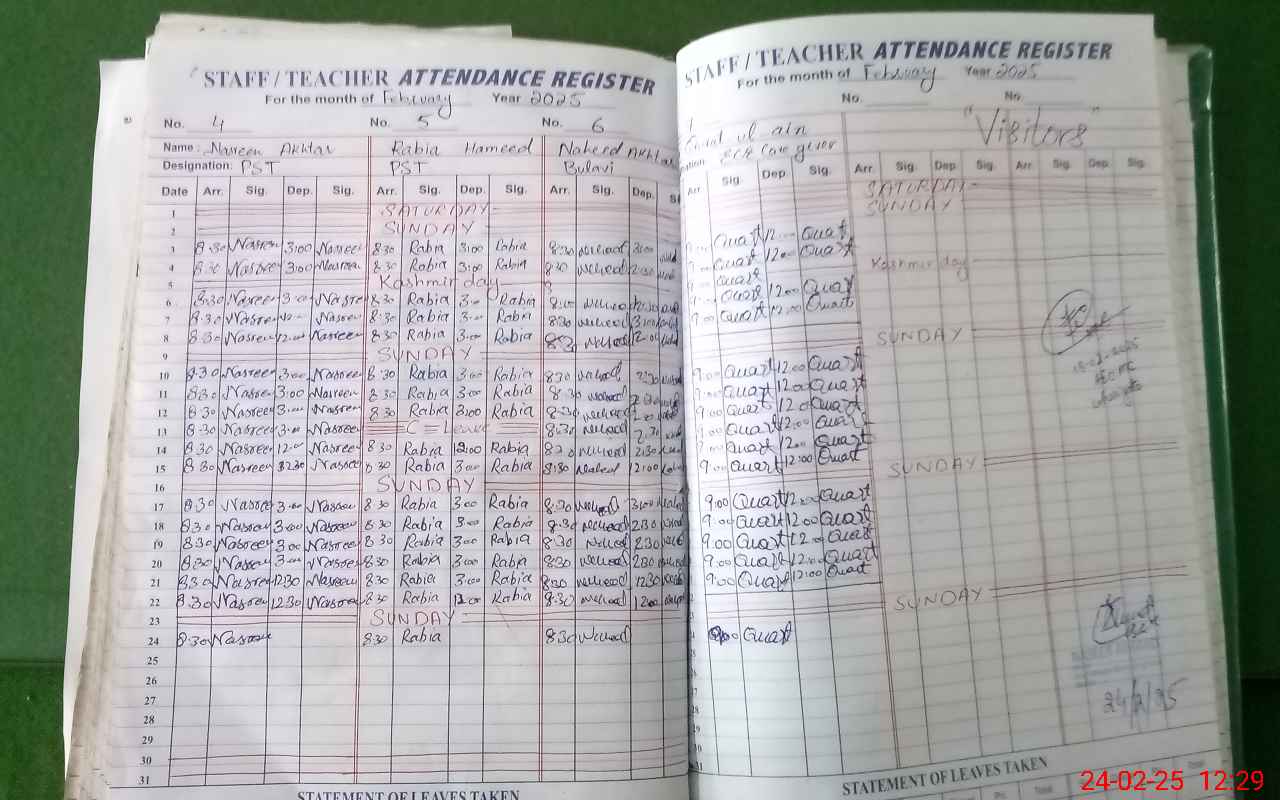 STAFF / TEACHER ATTENDANCE REGISTER
For the month of February Year 2025
No. 4 No. 5 No. 6
Name : Nasreen Akhtar Rabia Hameed Naheed Akhtar
Designation: PST PST Bulavi
Date Arr. Sig. Dep. Sig. Arr. Sig. Dep. Sig. Arr. Sig. Dep.
1 SATURDAY
2 SUNDAY
3 8:30 Nasreen 3:00 Nasreen 8:30 Rabia 3:00 Rabia 8:30 Naheed 3:00
4 8:30 Nasreen 3:00 Nasreen 8:30 Rabia 3:00 Rabia 8:30 Naheed
5 Kashmir day
6 8:30 Nasreen 3:00 Nasreen 8:30 Rabia 3:00 Rabia Naheed
7 8:30 Nasreen Nasreen 8:30 Rabia 3:00 Rabia 8:30 Naheed
8 8:30 Nasreen 12:00 Nasreen 8:30 Rabia 3:00 Rabia Naheed
9 SUNDAY
10 8:30 Nasreen 3:00 Nasreen 8:30 Rabia 3:00 Rabia 8:30 Naheed
11 8:30 Nasreen 3:00 Nasreen 8:30 Rabia 3:00 Rabia 8:30 Naheed
12 8:30 Nasreen 3:00 Nasreen 8:30 Rabia 3:00 Rabia 8:30 Naheed
13 8:30 Nasreen 3:00 Nasreen C = Leave 8:30 Naheed 2:30
14 8:30 Nasreen 12:00 Nasreen 8:30 Rabia 12:00 Rabia 8:30 Naheed 2:30
15 8:30 Nasreen Nasreen 8:30 Rabia 3:00 Rabia 8:30 Naheed 12:00
16 SUNDAY
17 8:30 Nasreen 3:00 Nasreen 8:30 Rabia 3:00 Rabia 8:30 Naheed 3:00
18 8:30 Nasreen 3:00 Nasreen 8:30 Rabia 3:00 Rabia 8:30 Naheed 2:30
19 8:30 Nasreen 3:00 Nasreen 8:30 Rabia 3:00 Rabia 8:30 Naheed 2:30
20 8:30 Nasreen 3:00 Nasreen 8:30 Rabia 3:00 Rabia 8:30 Naheed 2:30
21 8:30 Nasreen 12:30 Nasreen 8:30 Rabia 3:00 Rabia 8:30 Naheed 12:30
22 8:30 Nasreen 12:30 Nasreen 8:30 Rabia 12:00 Rabia 8:30 Naheed 12:00
23 SUNDAY
24 8:30 Nasreen 8:30 Rabia 8:30 Naheed
25
26
27
28
29
30
31
STATEMENT OF LEAVES TAKEN
STAFF / TEACHER ATTENDANCE REGISTER
For the month of February Year 2025
No. No.
Quart ul ain "Visitors"
ECE Care giver
Arr Sig. Dep. Sig. Arr. Sig. Dep. Sig. Arr. Sig. Dep. Sig.
SATURDAY
SUNDAY
Quart 12:00 Quart
Quart 12:00 Quart
Kashmir day
Quart
Quart 12:00 Quart
9:00 Quart 12:00 Quart
SUNDAY
9:00 Quart 12:00 Quart
9:00 Quart 12:00 Quart
9:00 Quart 12:00 Quart
9:00 Quart 12:00 Quart
9:00 Quart 12:00 Quart
9:00 Quart 12:00 Quart
SUNDAY
9:00 Quart 12:00 Quart
9:00 Quart 12:00 Quart
9:00 Quart 12:00 Quart
9:00 Quart 12:00 Quart
9:00 Quart 12:00 Quart
SUNDAY
9:00 Quart
24/2/25
STATEMENT OF LEAVES TAKEN
24-02-25 12:29